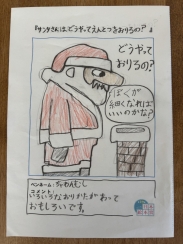 『サンタさんは、どうやってえんとつをおりるの？』
どうやって
おりるの？
ぼくが
細くなれば
いいのかな？
ペンネーム：ちゃわんむし
コメント：
いろいろなおりかたがあって
おもしろいです。